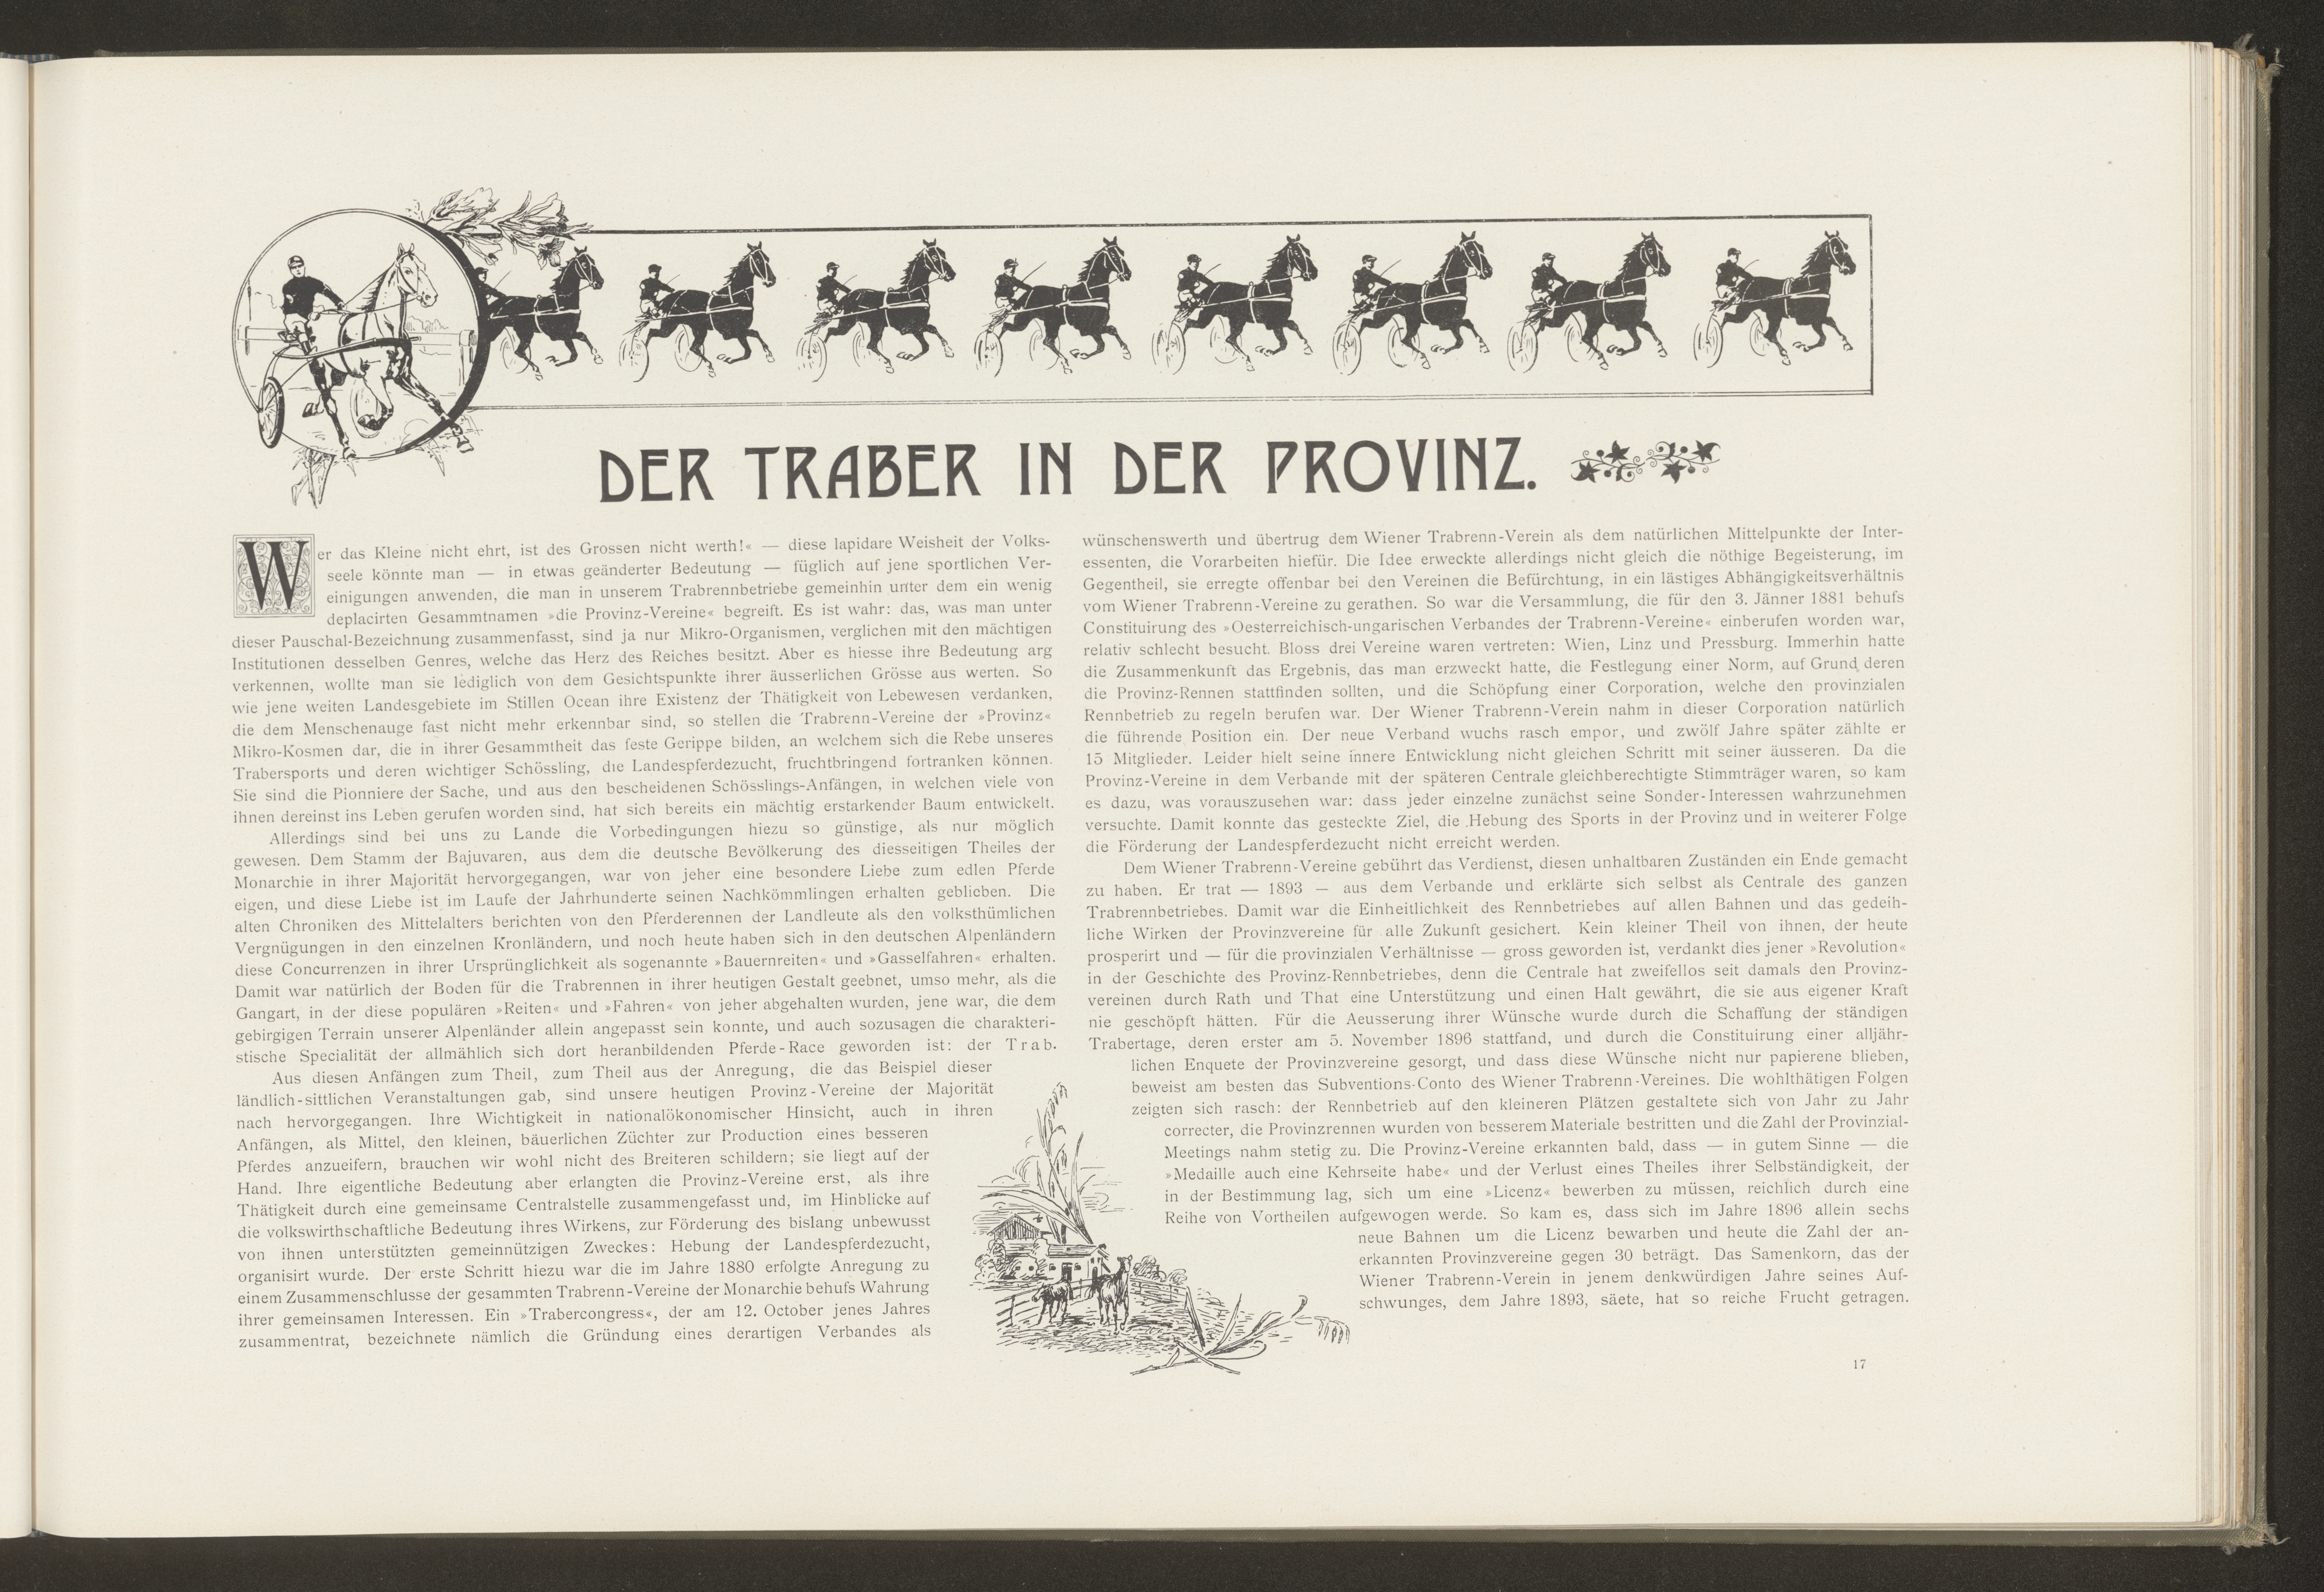 DER TRABER IN DER PROVINZ.
Wer das Kleine nicht ehrt, ist des Grossen nicht werth!« — diese lapidare Weisheit der Volks-
seele könnte man — in etwas geänderter Bedeutung — füglich auf jene sportlichen Ver-
einigungen anwenden, die man in unserem Trabrennbetriebe gemeinhin unter dem ein wenig
deplacirten Gesammtnamen »die Provinz-Vereine« begreift. Es ist wahr: das, was man unter
dieser Pauschal-Bezeichnung zusammenfasst, sind ja nur Mikro-Organismen, verglichen mit den mächtigen
Institutionen desselben Genres, welche das Herz des Reiches besitzt. Aber es hiesse ihre Bedeutung arg
verkennen, wollte man sie lediglich von dem Gesichtspunkte ihrer äusserlichen Grösse aus werten. So
wie jene weiten Landesgebiete im Stillen Ocean ihre Existenz der Thätigkeit von Lebewesen verdanken,
die dem Menschenauge fast nicht mehr erkennbar sind, so stellen die Trabrenn-Vereine der »Provinz«
Mikro-Kosmen dar, die in ihrer Gesammtheit das feste Gerippe bilden, an welchem sich die Rebe unseres
Trabersports und deren wichtiger Schössling, die Landespferdezucht, fruchtbringend fortranken können.
Sie sind die Pionniere der Sache, und aus den bescheidenen Schösslings-Anfängen, in welchen viele von
ihnen dereinst ins Leben gerufen worden sind, hat sich bereits ein mächtig erstarkender Baum entwickelt.
Allerdings sind bei uns zu Lande die Vorbedingungen hiezu so günstige, als nur möglich
gewesen. Dem Stamm der Bajuvaren, aus dem die deutsche Bevölkerung des diesseitigen Theiles der
Monarchie in ihrer Majorität hervorgegangen, war von jeher eine besondere Liebe zum edlen Pferde
eigen, und diese Liebe ist im Laufe der Jahrhunderte seinen Nachkömmlingen erhalten geblieben. Die
alten Chroniken des Mittelalters berichten von den Pferderennen der Landleute als den volksthümlichen
Vergnügungen in den einzelnen Kronländern, und noch heute haben sich in den deutschen Alpenländern
diese Concurrenzen in ihrer Ursprünglichkeit als sogenannte »Bauernreiten« und »Gasselfahren« erhalten.
Damit war natürlich der Boden für die Trabrennen in ihrer heutigen Gestalt geebnet, umso mehr, als die
Gangart, in der diese populären »Reiten« und »Fahren« von jeher abgehalten wurden, jene war, die dem
gebirgigen Terrain unserer Alpenländer allein angepasst sein konnte, und auch sozusagen die charakteri-
stische Specialität der allmählich sich dort heranbildenden Pferde-Race geworden ist: der Trab.
Aus diesen Anfängen zum Theil, zum Theil aus der Anregung, die das Beispiel dieser
ländlich-sittlichen Veranstaltungen gab, sind unsere heutigen Provinz-Vereine der Majorität
nach hervorgegangen. Ihre Wichtigkeit in nationalökonomischer Hinsicht, auch in ihren
Anfängen, als Mittel, den kleinen, bäuerlichen Züchter zur Production eines besseren
Pferdes anzueifern, brauchen wir wohl nicht des Breiteren schildern; sie liegt auf der
Hand. Ihre eigentliche Bedeutung aber erlangten die Provinz-Vereine erst, als ihre
Thätigkeit durch eine gemeinsame Centralstelle zusammengefasst und, im Hinblicke auf
die volkswirthschaftliche Bedeutung ihres Wirkens, zur Förderung des bislang unbewusst
von ihnen unterstützten gemeinnützigen Zweckes: Hebung der Landespferdezucht,
organisirt wurde. Der erste Schritt hiezu war die im Jahre 1880 erfolgte Anregung zu
einem Zusammenschlusse der gesammten Trabrenn-Vereine der Monarchie behufs Wahrung
ihrer gemeinsamen Interessen. Ein »Trabercongress«, der am 12. October jenes Jahres
zusammentrat, bezeichnete nämlich die Gründung eines derartigen Verbandes als
wünschenswerth und übertrug dem Wiener Trabrenn-Verein als dem natürlichen Mittelpunkte der Inter-
essenten, die Vorarbeiten hiefür. Die Idee erweckte allerdings nicht gleich die nöthige Begeisterung, im
Gegentheil, sie erregte offenbar bei den Vereinen die Befürchtung, in ein lästiges Abhängigkeitsverhältnis
vom Wiener Trabrenn-Vereine zu gerathen. So war die Versammlung, die für den 3. Jänner 1881 behufs
Constituirung des »Oesterreichisch-ungarischen Verbandes der Trabrenn-Vereine« einberufen worden war,
relativ schlecht besucht. Bloss drei Vereine waren vertreten: Wien, Linz und Pressburg. Immerhin hatte
die Zusammenkunft das Ergebnis, das man erzweckt hatte, die Festlegung einer Norm, auf Grund deren
die Provinz-Rennen stattfinden sollten, und die Schöpfung einer Corporation, welche den provinzialen
Rennbetrieb zu regeln berufen war. Der Wiener Trabrenn-Verein nahm in dieser Corporation natürlich
die führende Position ein. Der neue Verband wuchs rasch empor, und zwölf Jahre später zählte er
15 Mitglieder. Leider hielt seine innere Entwicklung nicht gleichen Schritt mit seiner äusseren. Da die
Provinz-Vereine in dem Verbande mit der späteren Centrale gleichberechtigte Stimmträger waren, so kam
es dazu, was vorauszusehen war: dass jeder einzelne zunächst seine Sonder-Interessen wahrzunehmen
versuchte. Damit konnte das gesteckte Ziel, die Hebung des Sports in der Provinz und in weiterer Folge
die Förderung der Landespferdezucht nicht erreicht werden.
Dem Wiener Trabrenn-Vereine gebührt das Verdienst, diesen unhaltbaren Zuständen ein Ende gemacht
zu haben. Er trat — 1893 — aus dem Verbande und erklärte sich selbst als Centrale des ganzen
Trabrennbetriebes. Damit war die Einheitlichkeit des Rennbetriebes auf allen Bahnen und das gedeih-
liche Wirken der Provinzvereine für alle Zukunft gesichert. Kein kleiner Theil von ihnen, der heute
prosperirt und — für die provinzialen Verhältnisse — gross geworden ist, verdankt dies jener »Revolution«
in der Geschichte des Provinz-Rennbetriebes, denn die Centrale hat zweifellos seit damals den Provinz-
vereinen durch Rath und That eine Unterstützung und einen Halt gewährt, die sie aus eigener Kraft
nie geschöpft hätten. Für die Aeusserung ihrer Wünsche wurde durch die Schaffung der ständigen
Trabertage, deren erster am 5. November 1896 stattfand, und durch die Constituirung einer alljähr-
lichen Enquete der Provinzvereine gesorgt, und dass diese Wünsche nicht nur papierene blieben,
beweist am besten das Subventions-Conto des Wiener Trabrenn-Vereines. Die wohlthätigen Folgen
zeigten sich rasch: der Rennbetrieb auf den kleineren Plätzen gestaltete sich von Jahr zu Jahr
correcter, die Provinzrennen wurden von besserem Materiale bestritten und die Zahl der Provinzial-
Meetings nahm stetig zu. Die Provinz-Vereine erkannten bald, dass — in gutem Sinne — die
»Medaille auch eine Kehrseite habe« und der Verlust eines Theiles ihrer Selbständigkeit, der
in der Bestimmung lag, sich um eine »Licenz« bewerben zu müssen, reichlich durch eine
Reihe von Vortheilen aufgewogen werde. So kam es, dass sich im Jahre 1896 allein sechs
neue Bahnen um die Licenz bewarben und heute die Zahl der an-
erkannten Provinzvereine gegen 30 beträgt. Das Samenkorn, das der
Wiener Trabrenn-Verein in jenem denkwürdigen Jahre seines Auf-
schwunges, dem Jahre 1893, säete, hat so reiche Frucht getragen.
17